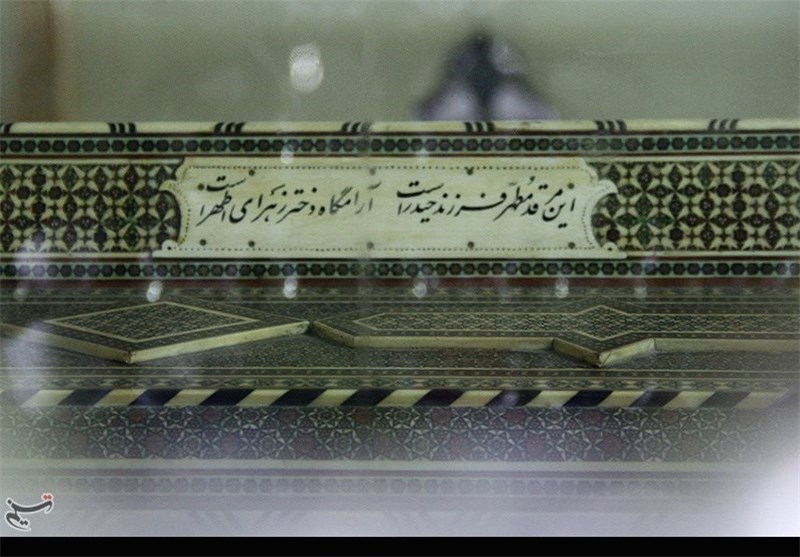 این مرقد مطهر فرزند حیدر است آرامگاه دختر زهرای اطهر است
تسنیم